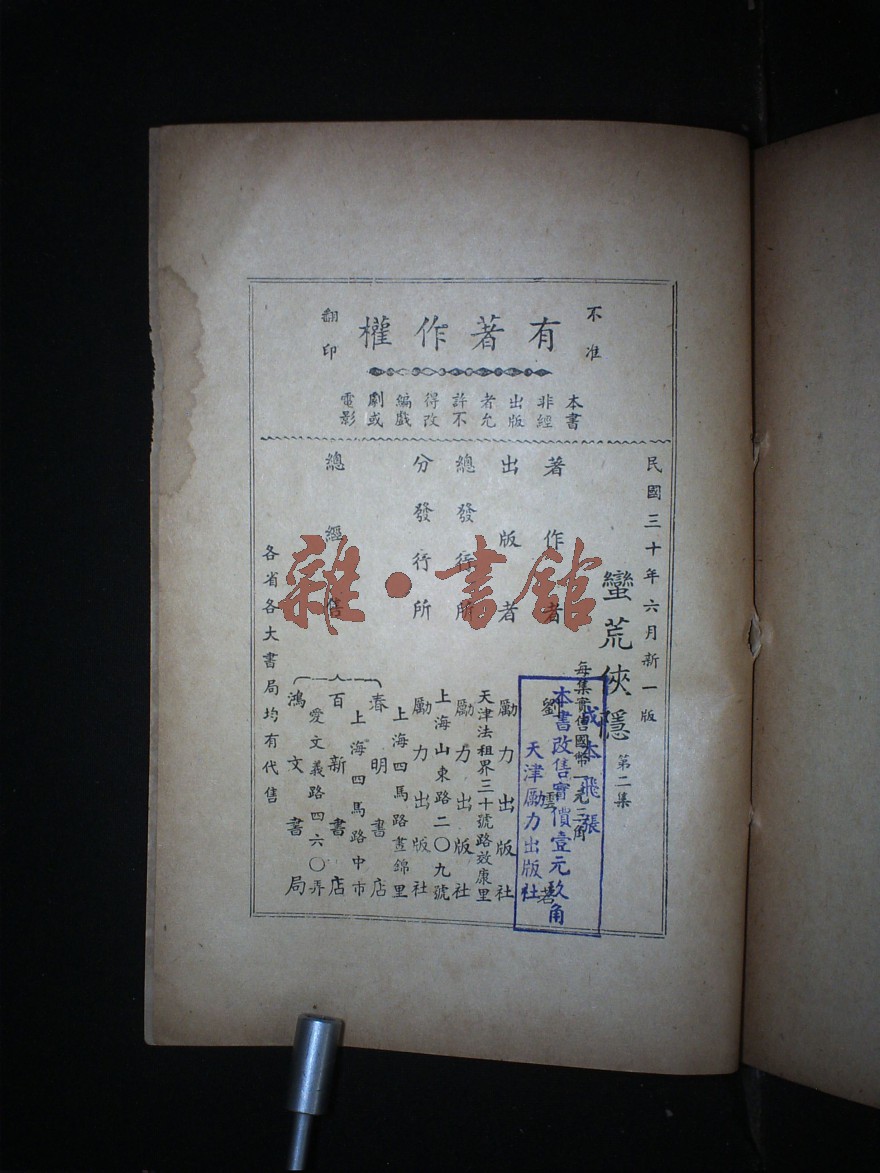 不准
有著作權
翻印
本書
非經
出版
者允
許不
得改
編戲
劇或
電影
民國三十年六月新一版
蠻荒俠隱 第二集
每集實售國幣一元二角
著作者 劉雲
出版者 勵力出版社
天津法租界三十號路效康里
總發行所 勵力出版社
上海山東路二〇九號
分發行所 勵力出版社
上海四馬路晝錦里
總經售 春明書店
上海四馬路中市
百新書店
愛文義路四六〇弄
鴻文書局
各省各大書局均有代售
成本飛張
本書改售實價壹元玖角
天津勵力出版社
雜·書館